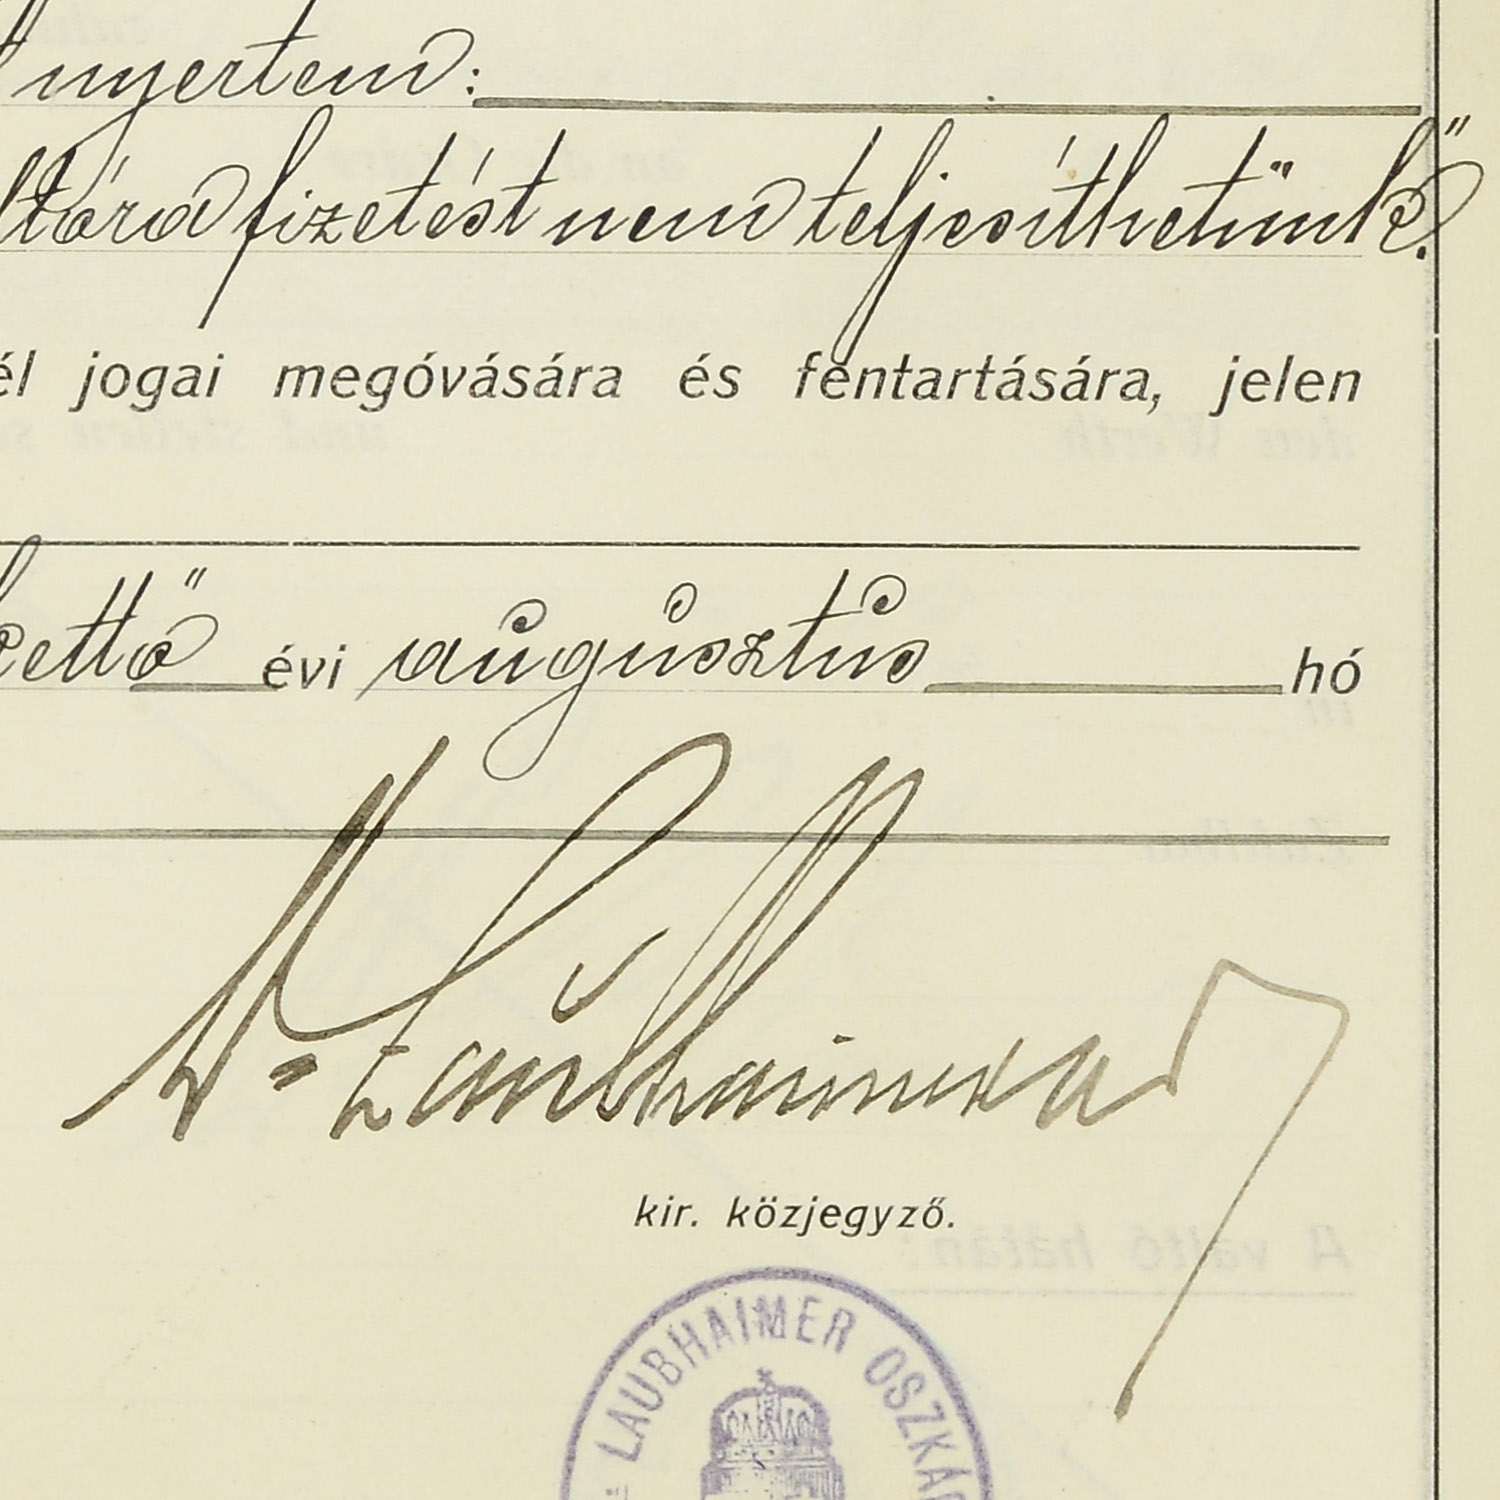 nyertem:
fizetést nem teljesíthetünk."
él jogai megóvására és fentartására, jelen
évi augusztus hó
Dr Laubhaimer
kir. közjegyző.
LAUBHAIMER OSZKÁR